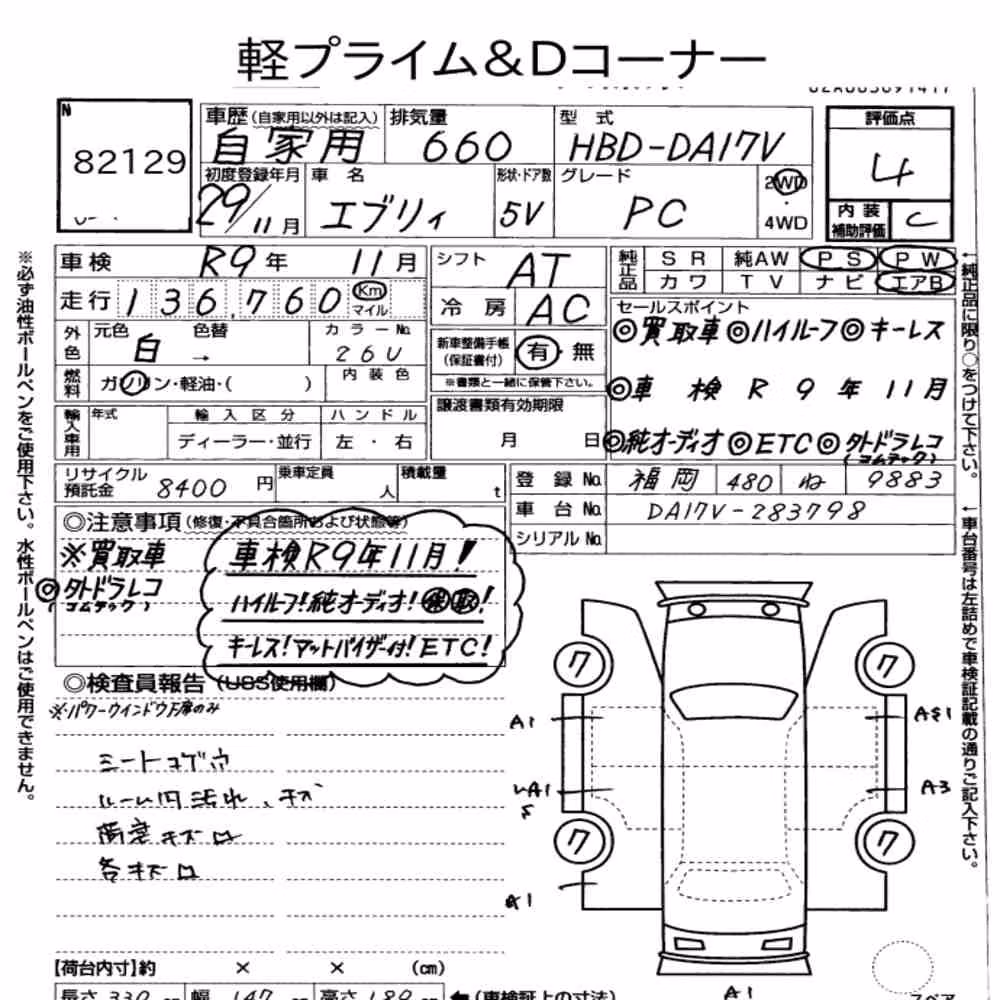 軽プライム＆Dコーナー
N
82129
車歴(自家用以外は記入)
自家用
排気量
660
型式
HBD-DA17V
評価点
4
初度登録年月
29/11月
車名
エブリィ
形状・ドア数
5V
グレード
PC
2WD
・
4WD
内装
補助評価
C
車検 R9年 11月
シフト AT
純正品
SR 純AW PS PW
カワ TV ナビ エアB
走行 136,760 Km
マイル
冷房 AC
セールスポイント
◎買取車◎ハイルーフ◎キーレス
◎車 検 R 9 年 11月
◎純オーディオ◎ETC◎外ドラレコ
(コムテック)
外色
元色 白
色替 →
カラーNo.
26U
新車整備手帳
(保証書付)
有・無
※書類と一緒に保管下さい。
燃料
ガソリン・軽油・( )
内装色
輸入車用
年式
輸入区分
ディーラー・並行
ハンドル
左・右
譲渡書類有効期限
月 日
リサイクル
預託金 8400円
乗車定員
人
積載量
t
登録No. 福岡 480 ね 9883
車台No. DA17V-283798
シリアルNo.
◎注意事項(修復・不具合箇所および状態等)
※買取車
◎外ドラレコ
(コムテック)
車検R9年11月!
ハイルーフ!純オーディオ!買取!
キーレス!マットバイザー付!ETC!
◎検査員報告(USS使用欄)
※パワーウインドウ下席のみ
シートコゲ穴
ルーム内汚れ、キズ
荷室キズ凹
各キズ凹
7
7
7
7
A1
AS1
A3
A1
A1
※必ず油性ボールペンをご使用下さい。水性ボールペンはご使用できません。
←純正品に限り○をつけて下さい。
←車台番号は左詰めで車検証記載の通りご記入下さい。
【荷台内寸】約 × × (cm)
長さ 330 cm 幅 147 cm 高さ 189 cm ←(車検証上の寸法)
スペア